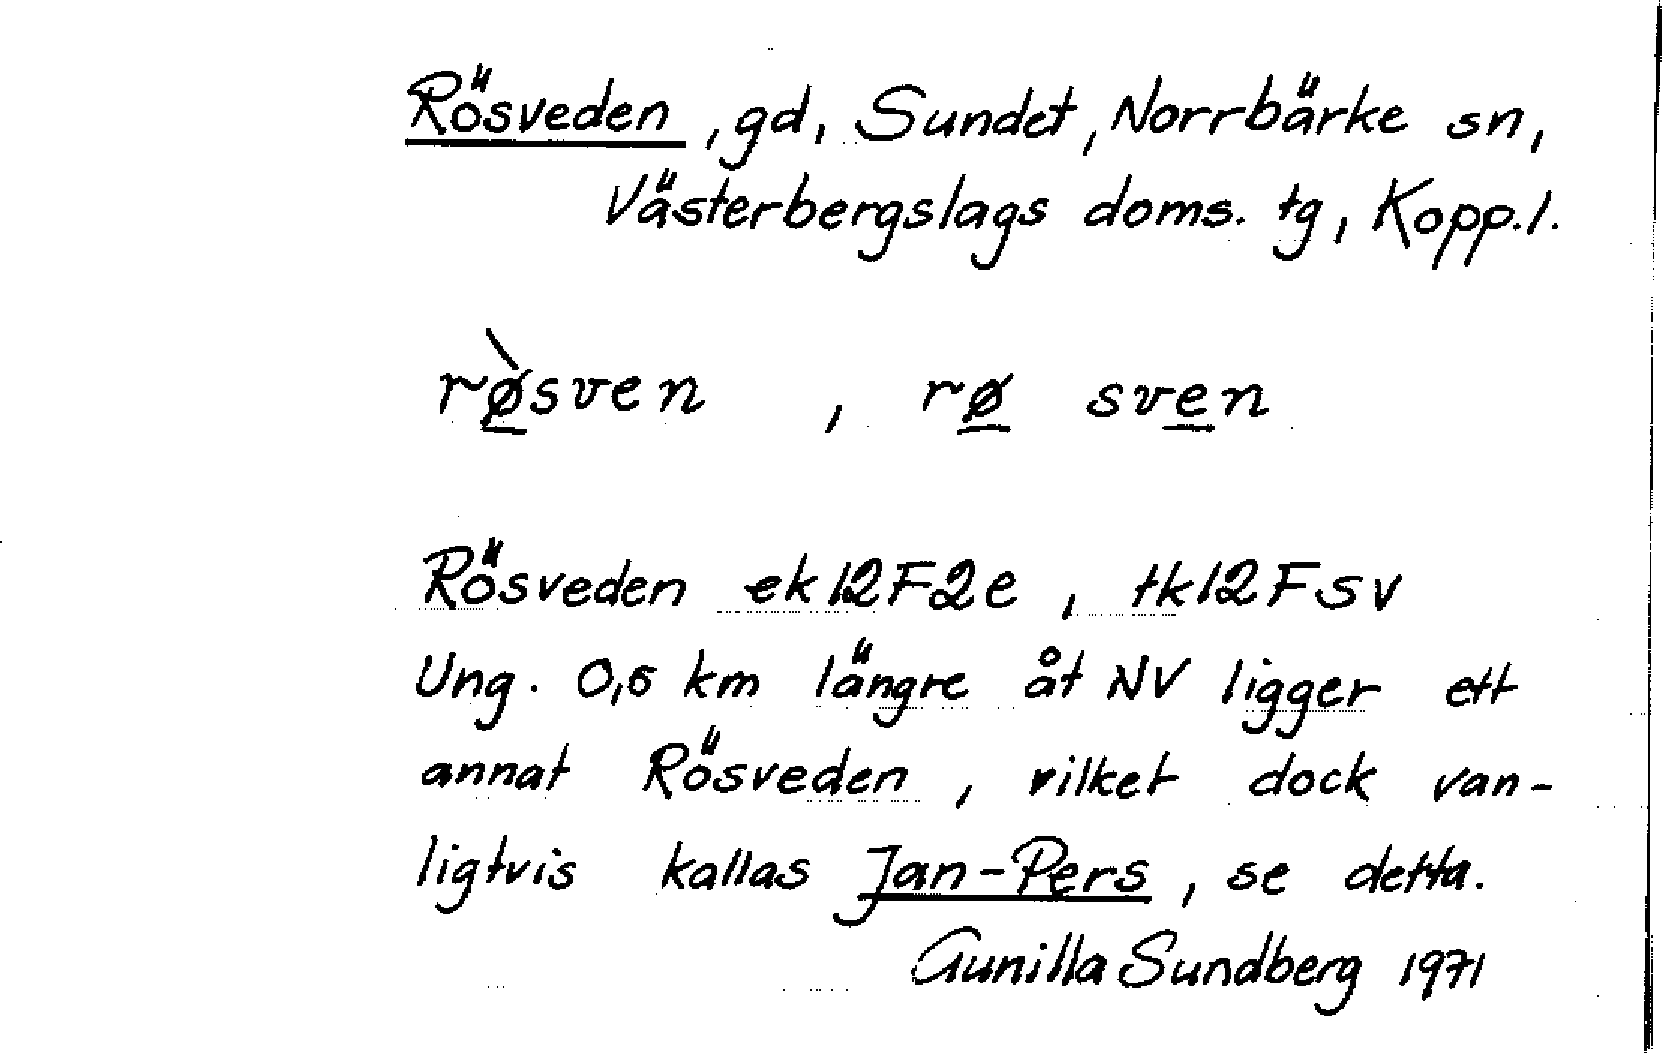 Rösveden, gd, Sundet, Norrbärke sn,
Västerbergslags doms. tg, Kopp.l.
rø̀sven, rø sven
Rösveden ek12F2e, tk12Fsv
Ung. 0,6 km längre åt NV ligger ett
annat Rösveden, vilket dock van-
ligtvis kallas Jan-Pers, se detta.
Gunilla Sundberg 1971